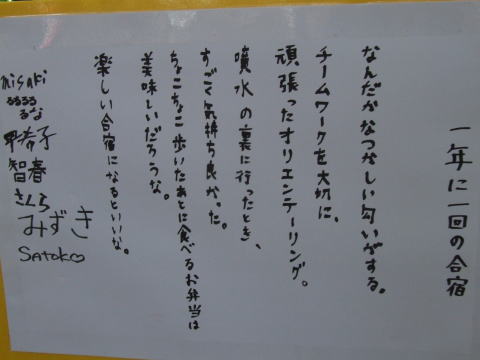 一年に一回の合宿
なんだかなつかしい匂いがする。
チームワークを大切に、
頑張ったオリエンテーリング。
噴水の裏に行ったとき、
すごく気持ち良かった。
ちょこちょこ歩いたあとに食べるお弁当は
美味しいだろうな。
楽しい合宿になるといいな。
misaki
るるる
るな
智春
さくら
みずき
SATOKO